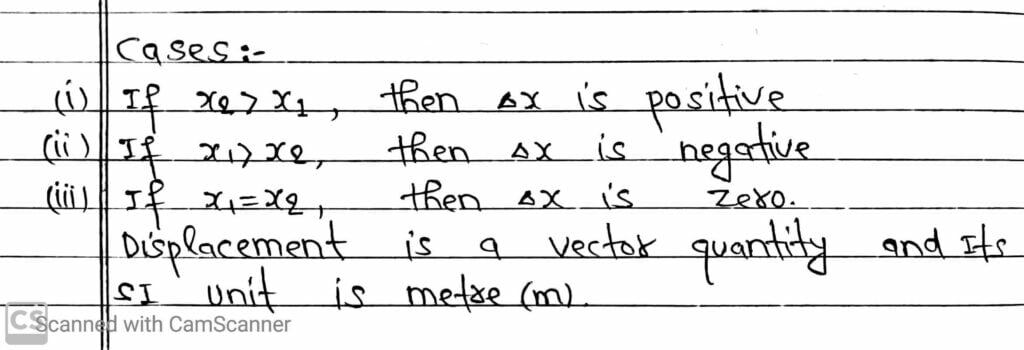 Cases:-
(i) If x₂ > x₁, then Δx is positive
(ii) If x₁ > x₂, then Δx is negative
(iii) If x₁ = x₂, then Δx is zero.
Displacement is a vector quantity and Its
SI unit is metre (m).
CS Scanned with CamScanner